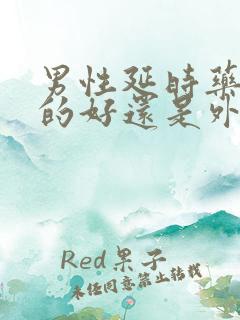 男性延时药
的好還是外
Red果子
未经同意禁止转载